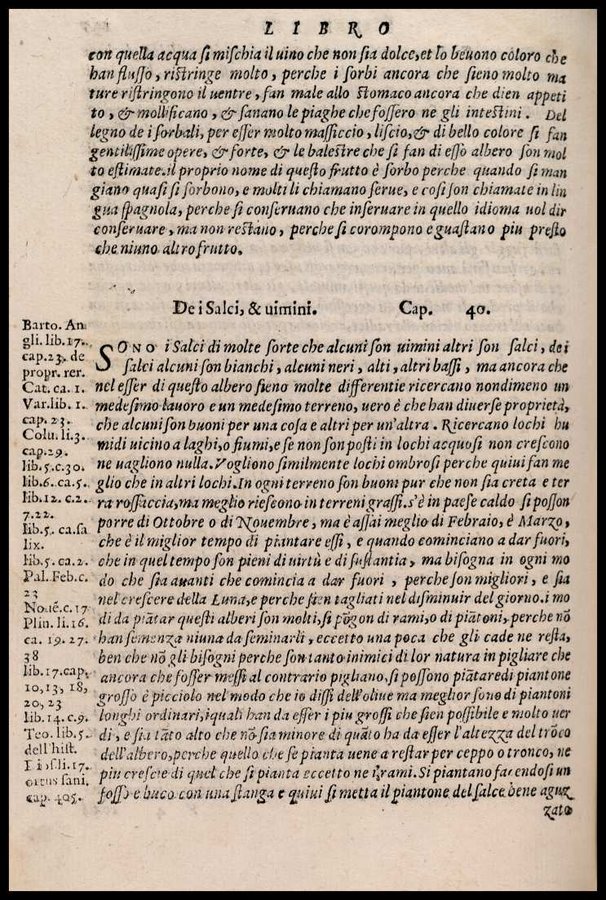 LIBRO
con quella acqua si mischia il uino che non sia dolce, et lo beuono coloro che
han flusso, ristringe molto, perche i sorbi ancora che sieno molto ma
ture ristringono il uentre, fan male allo stomaco ancora che dien appeti
to, & mollificano, & sanano le piaghe che fossero ne gli intestini. Del
legno de i sorbali, per esser molto massiccio, liscio, & di bello colore si fan
gentilissime opere, & forte, & le balestre che si fan di esso albero son mol
to estimate. il proprio nome di questo frutto è sorbo perche quando si man
giano quasi si sorbono, e molti li chiamano serue, e cosi son chiamate in lin
gua spagnola, perche si conseruano che inseruare in quello idioma uol dir
conseruare, ma non restano, perche si corompono e guastano piu presto
che niuno altro frutto.
De i Salci, & uimini. Cap. 40.
Barto. An
gli. lib. 17.
cap. 23. de
propr. rer.
Cat. ca. 1.
Var. lib. 1.
cap. 23.
Colu. li. 3.
cap. 29.
lib. 5. c. 30.
lib. 6. ca. 5.
lib. 12. c. 2.
7. 22.
lib. 5. ca. sa
lix.
lib. 5. ca. 2.
Pal. Feb. c.
23
No. ué. c. 17
Plin. li. 16.
ca. 19. 27.
38
lib. 17. cap.
10, 13, 18,
20, 23
lib. 14. c. 9.
Teo. lib. 5.
dell'hist.
li. 17.
ortus sani.
cap. 405.
SONO i Salci di molte sorte che alcuni son uimini altri son salci, dei
salci alcuni son bianchi, alcuni neri, alti, altri bassi, ma ancora che
nel esser di questo albero sieno molte differentie ricercano nondimeno un
medesimo lauoro e un medesimo terreno, uero è che han diuerse proprietà,
che alcuni son buoni per una cosa e altri per un'altra. Ricercano lochi hu
midi uicino a laghi, o fiumi, e se non son posti in lochi acquosi non crescono
ne uagliono nulla. Vogliono similmente lochi ombrosi perche quiui fan me
glio che in altri lochi. In ogni terreno son buoni pur che non sia creta e ter
ra rossaccia, ma meglio riescono in terreni grassi. s'è in paese caldo si posson
porre di Ottobre o di Nouembre, ma è assai meglio di Febraio, è Marzo,
che è il miglior tempo di piantare essi, e quando cominciano a dar fuori,
che in quel tempo son pieni di uirtù e di sustantia, ma bisogna in ogni mo
do che sia auanti che comincia a dar fuori, perche son migliori, e sia
nel crescere della Luna, e perche sien tagliati nel disminuir del giorno. i mo
di da piãtar questi alberi son molti, si põgon di rami, o di piãtoni, perche nõ
han semenza niuna da seminarli, eccetto una poca che gli cade ne resta,
ben che nõ gli bisogni perche son tanto inimici di lor natura in pigliare che
ancora che fosser messi al contrario pigliano. si possono piãtare di piantone
grosso è picciolo nel modo che io dissi dell'oliue ma meglior sono di piantoni
longhi ordinari, iquali han da esser i piu grossi che sien possibile e molto uer
di, e sia tãto alto che nõ sia minore di quãto ha da esser l'altezza del trõco
dell'albero, perche quello che se pianta uene a restar per ceppo o tronco, ne
piu crescie di quel che si pianta eccetto ne i rami. Si piantano facendosi un
fosso e buco con una stanga e quiui si metta il piantone del salce bene aguz
zato